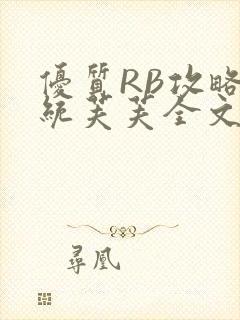 優質RB攻略
統芙芙全文
尋凰